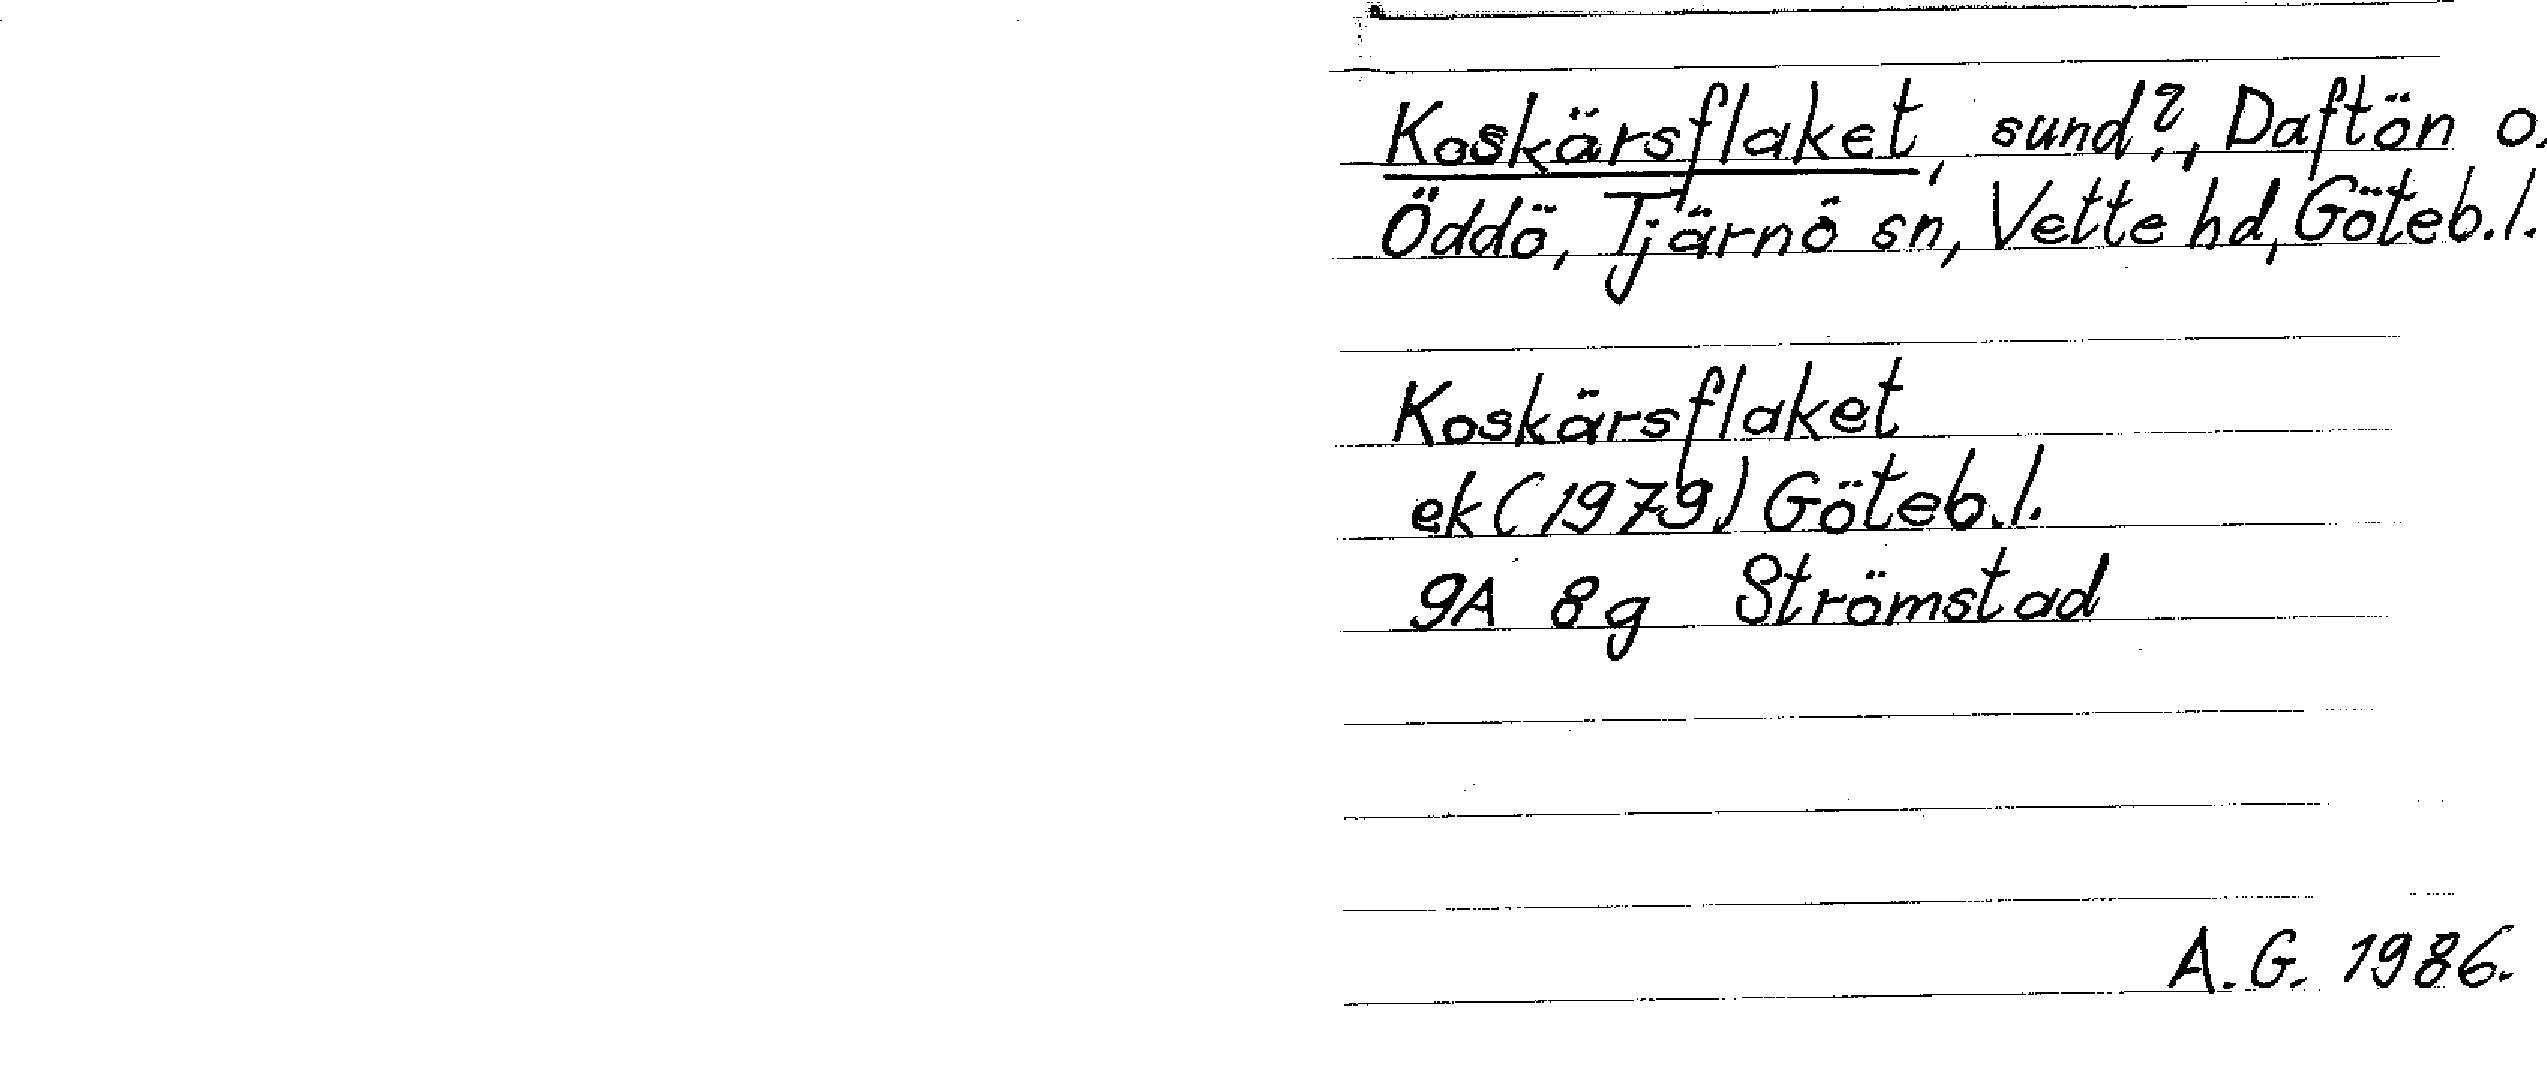 Koskärsflaket, sund?, Daftön o.
Öddö, Tjärnö sn, Vette hd, Göteb.l.
Koskärsflaket
ek (1979) Göteb.l.
9A 8g Strömstad
A.G. 1986.